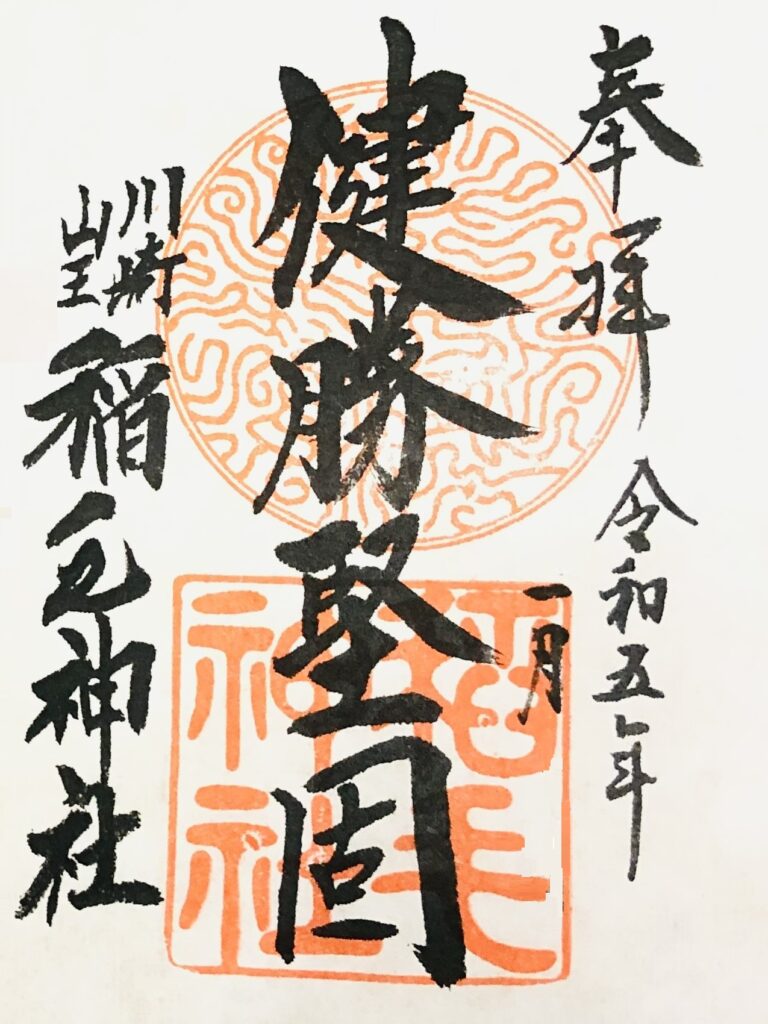 奉拝
令和五年
一月
健勝堅固
川崎
山王
稲毛神社
稲毛
神社